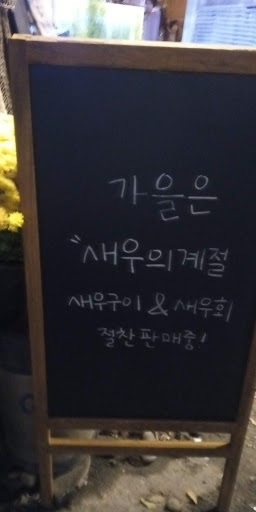 가을은
"새우의계절
새우구이 & 새우회
절찬판매중!